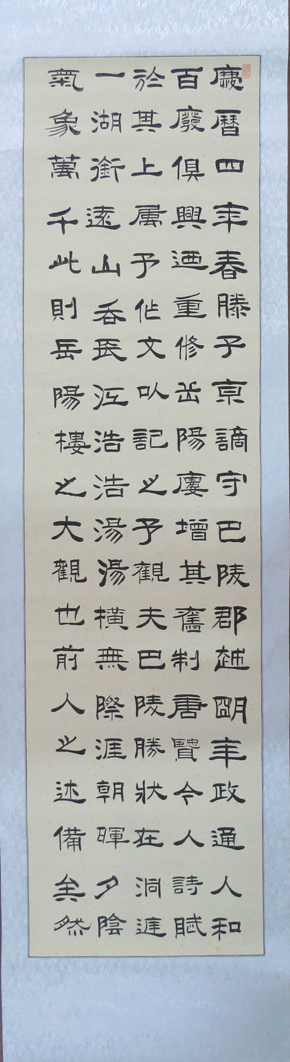 慶曆四年春滕子京謫守巴陵郡越明年政通人和
百廢俱興迺重修岳陽廔增其舊制唐賢今人詩賦
於其上属予作文以記之予觀夫巴陵勝狀在洞庭
一湖銜遠山吞長江浩浩湯湯橫無際涯朝暉夕陰
氣象萬千此則岳陽樓之大觀也前人之述備矣然